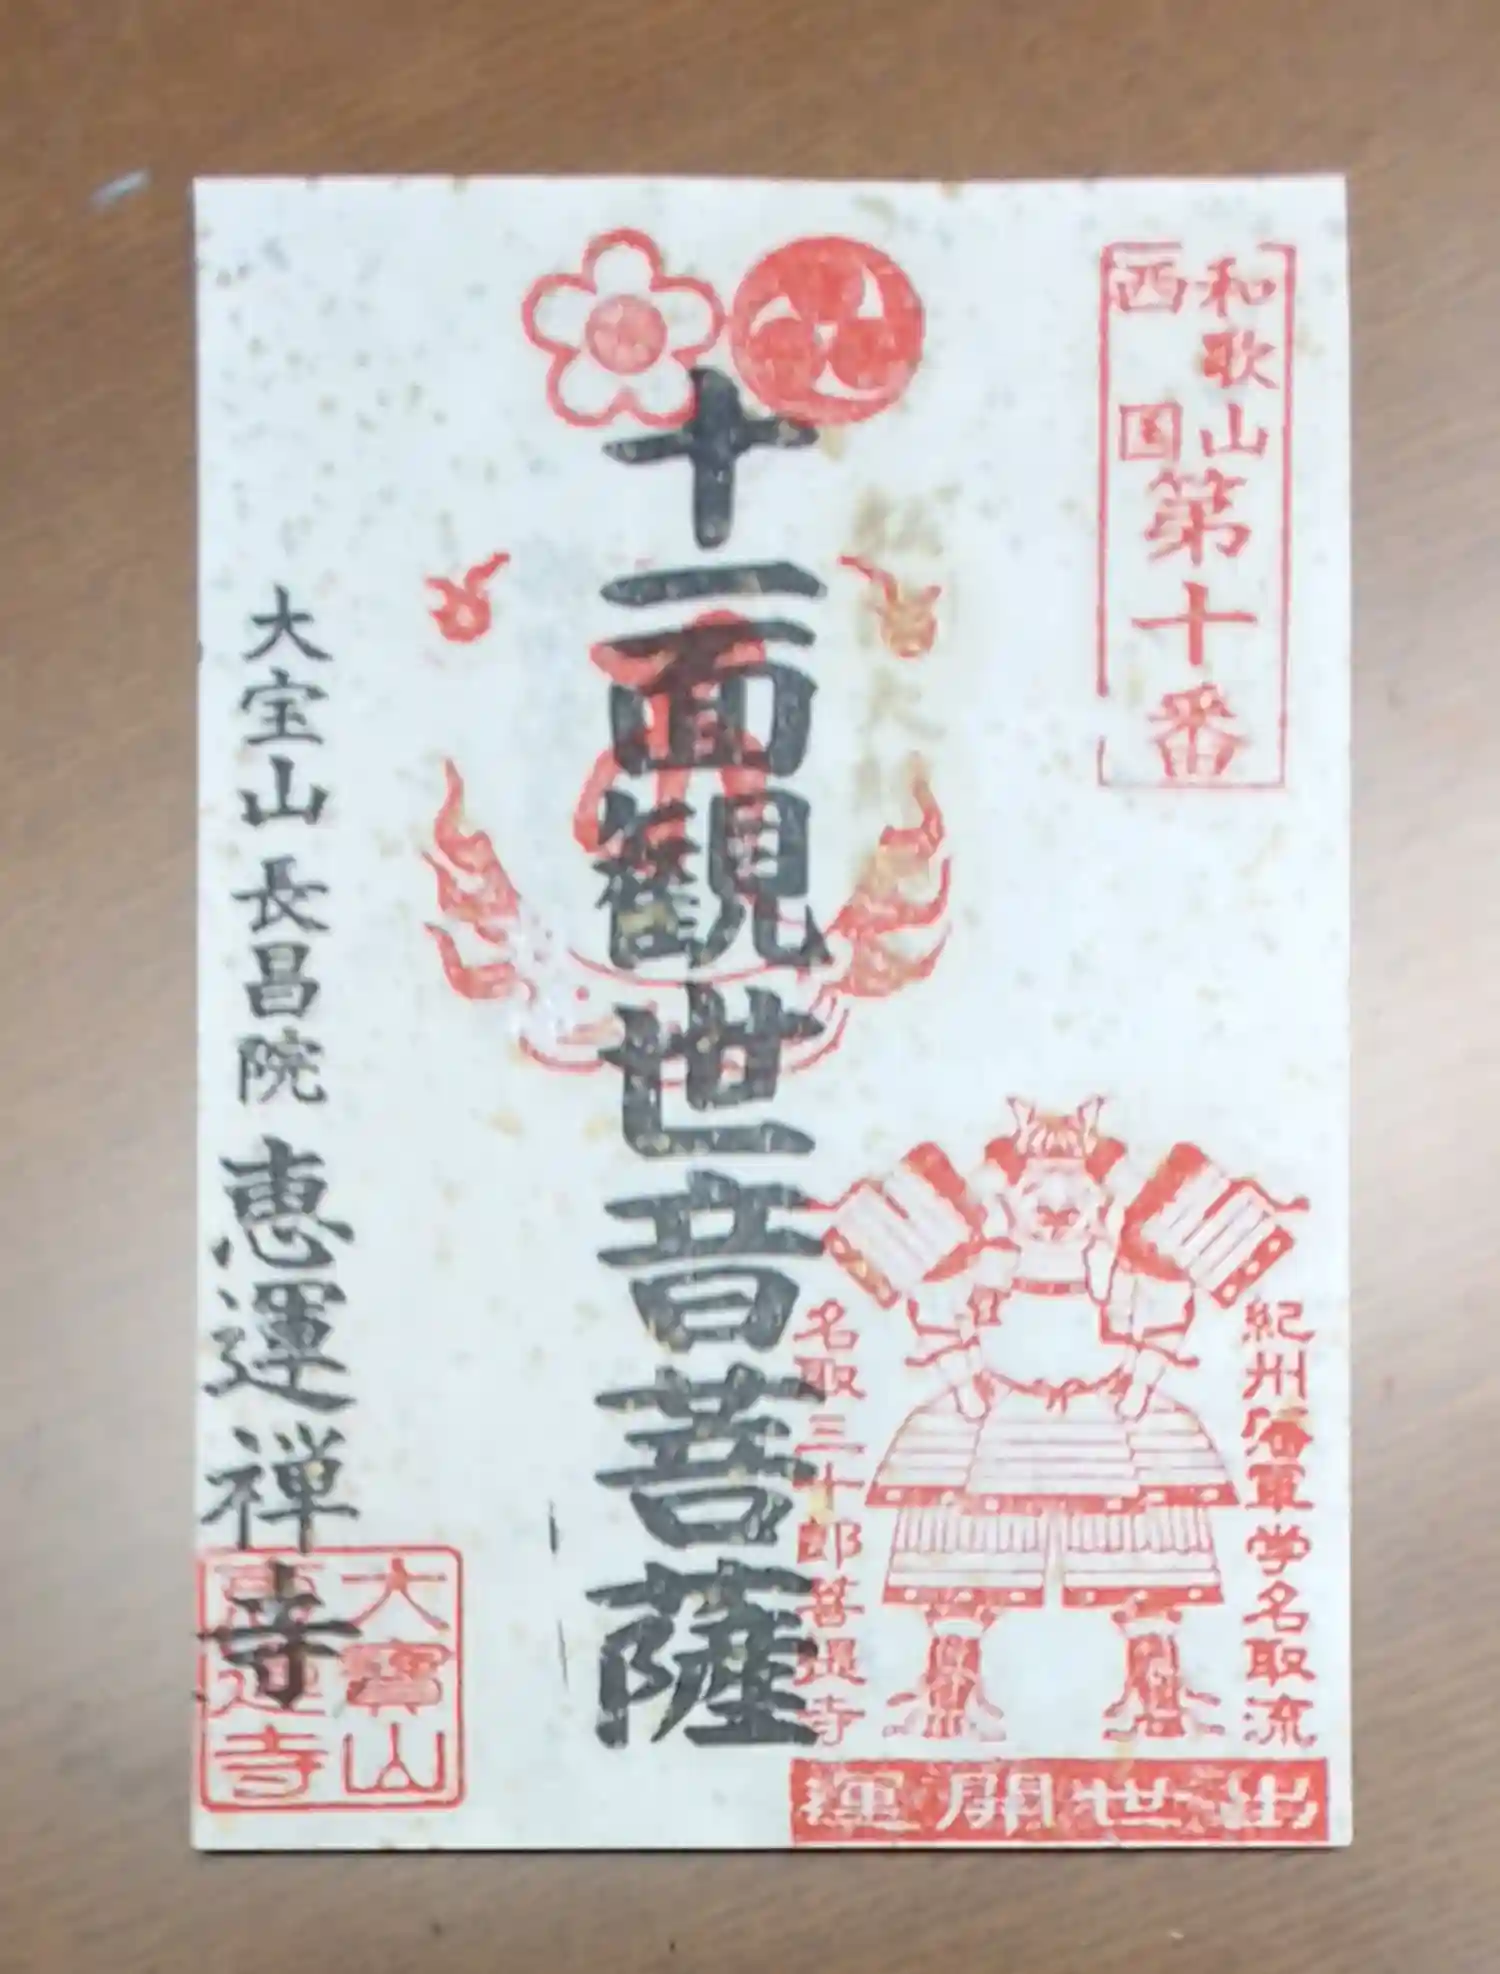 和歌山
西国
第十番
十一面観世音菩薩
紀州海軍学名取流
名取三十郎菩提寺
出世開運
大宝山 長昌院 恵運禅寺
大寶山
恵運寺